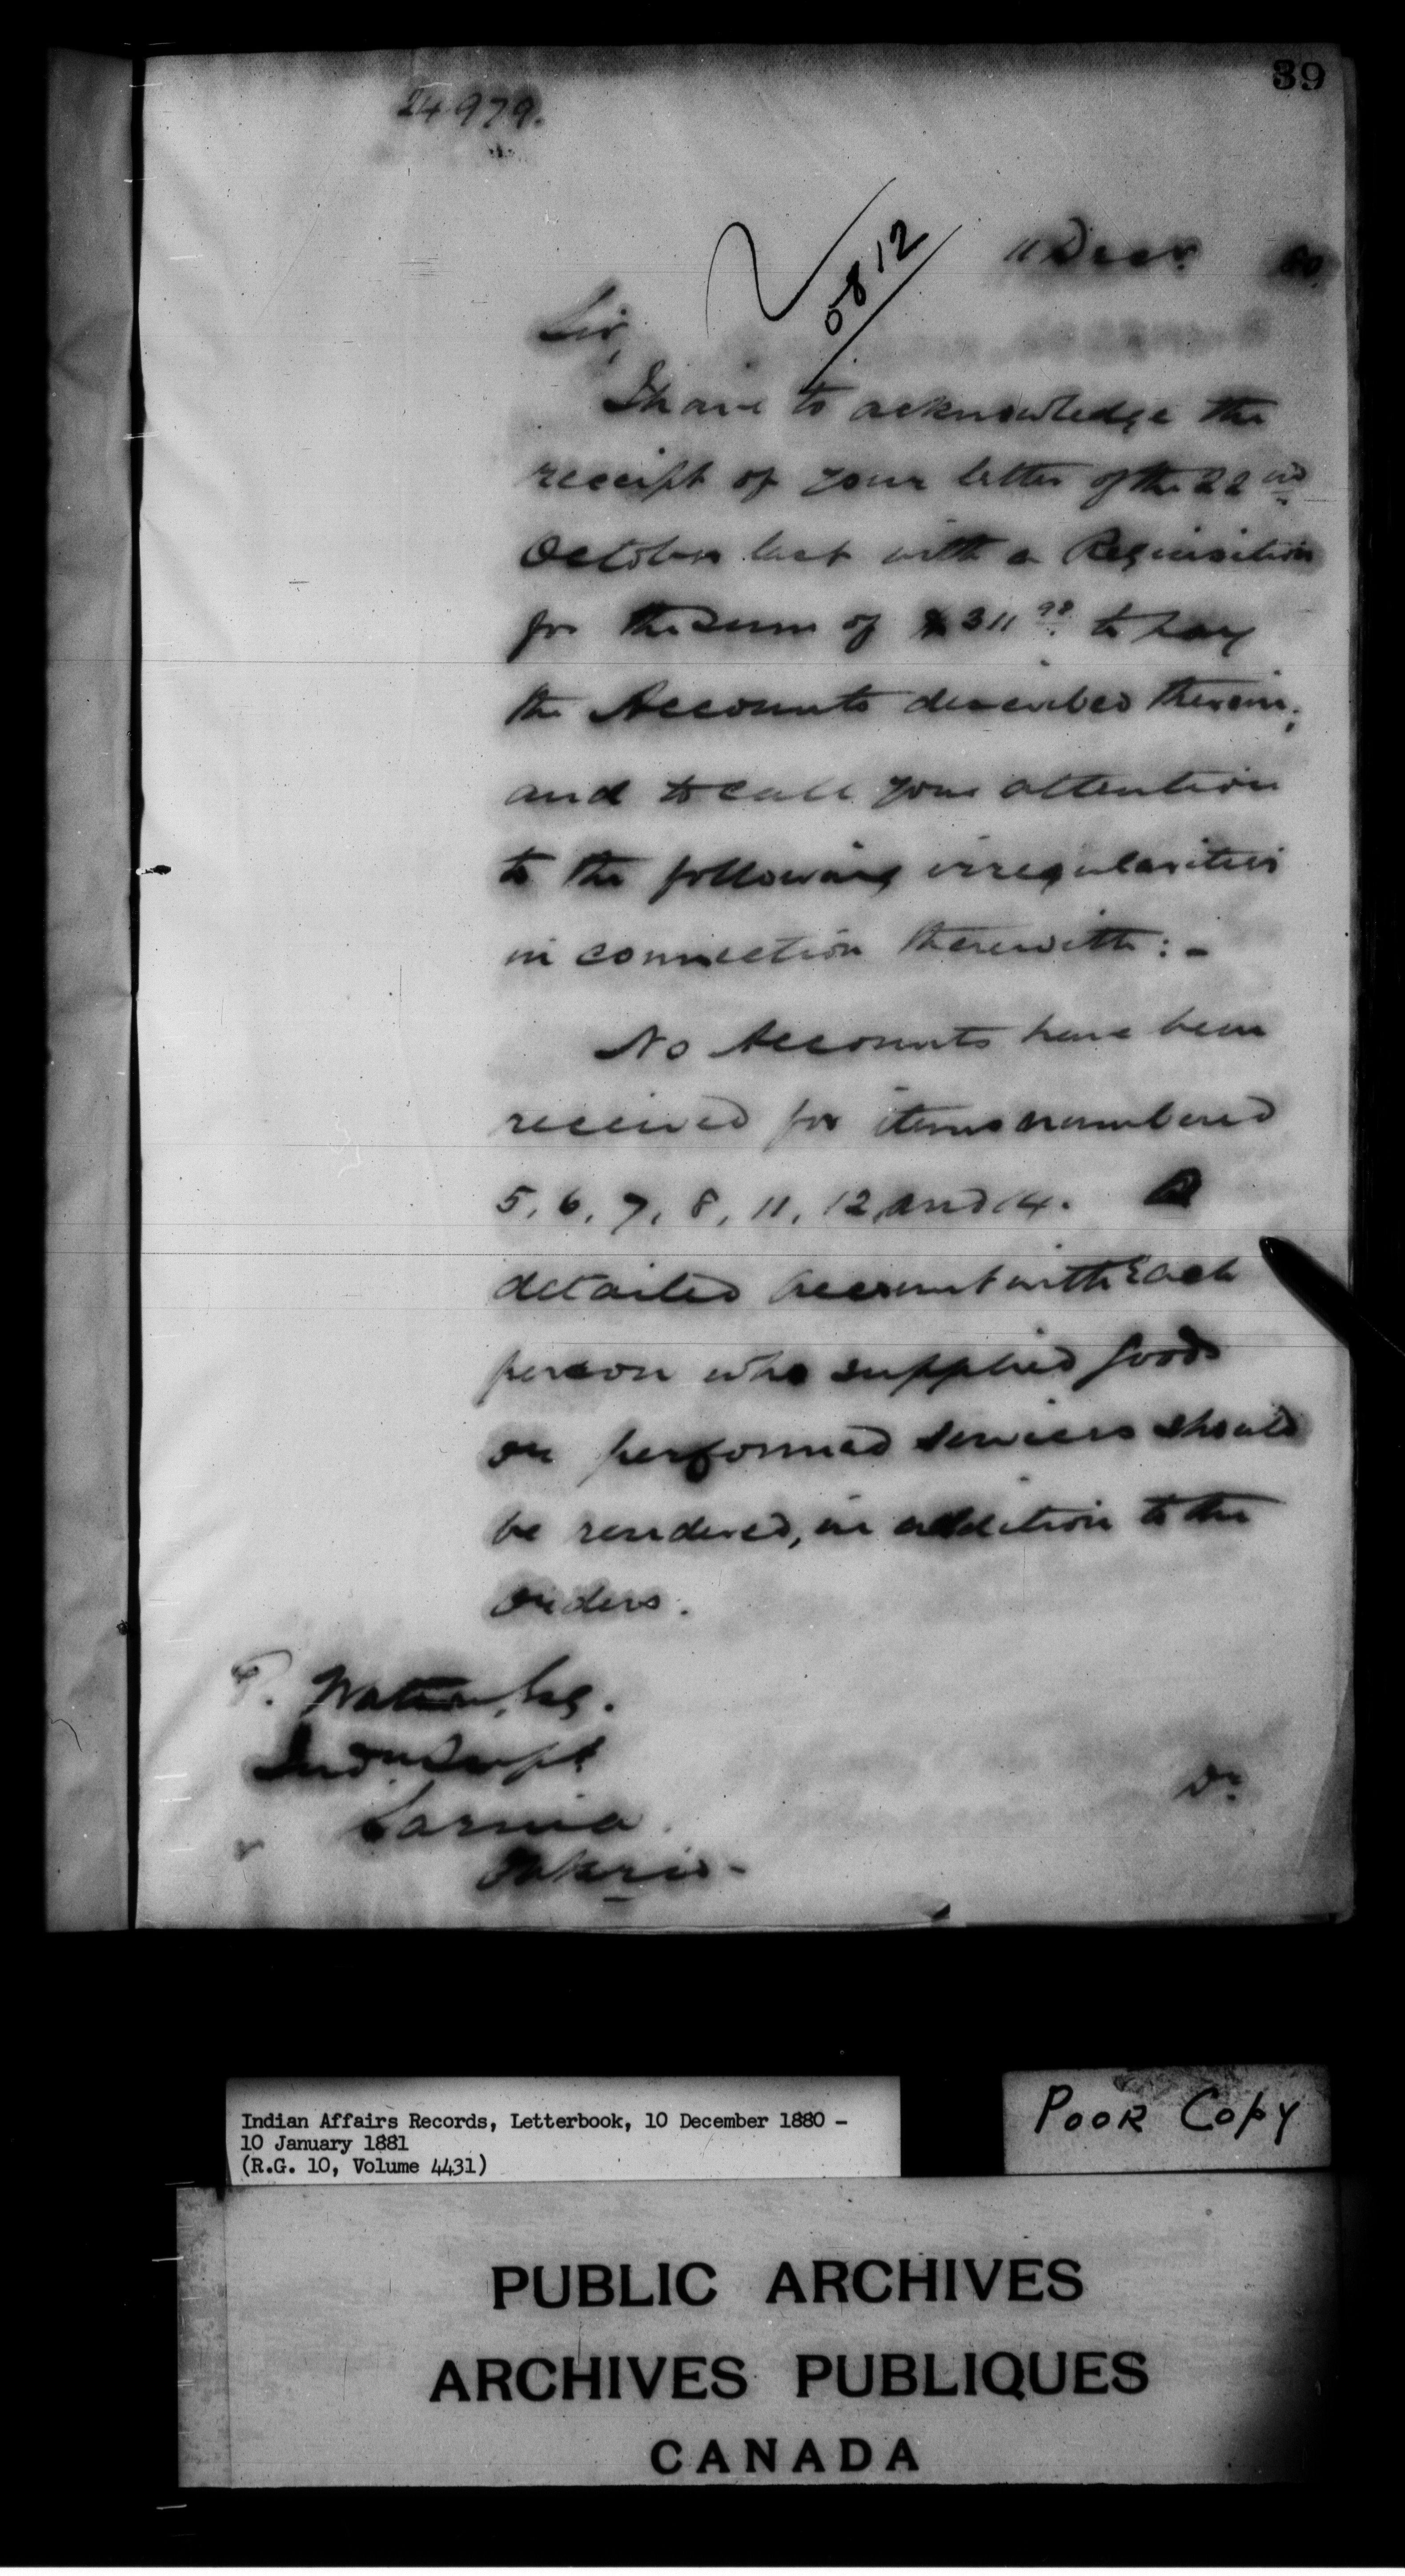 39
24979.
11 Decr. 80.
0812
Sir,
I have to acknowledge the
receipt of your letter of the 22nd
October last with a Requisition
for the sum of $311.98 to pay
the Accounts described therein;
and to call your attention
to the following irregularities
in connection therewith:-
No Accounts have been
received for items numbered
5, 6, 7, 8, 11, 12, and 14. A
detailed Account with each
person who supplied goods
or performed services should
be rendered, in addition to the
orders.
Watson, Esq.
Indn Supt
Sarnia.
Ontario-
Indian Affairs Records, Letterbook, 10 December 1880 -
10 January 1881
(R.G. 10, Volume 4431)
POOR COPY
PUBLIC ARCHIVES
ARCHIVES PUBLIQUES
CANADA